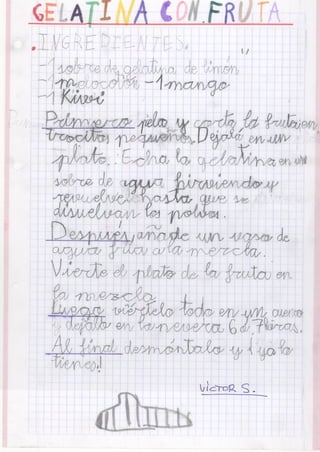 GELATINA CON FRUTA
. INGREDIENTES.
-1 sobre de gelatina de limón
-1 melocotón -1 mango
-1 Kiwi
Primero, pela y corta la fruta en
trocitos pequeños. Dejala en un
plato. Echa la gelatina en un
sobre de agua hirviendo y
revuelve hasta que se
disuelvan los polvos.
Después, añade un vaso de
agua fría a la mezcla.
Vierte el plato de la fruta en
la mezcla.
Luego viértelo todo en un cuenco
y déjalo en la nevera 6 ó 7 horas.
Al final desmóntala y ¡ya la
tienes!
VÍCTOR S.